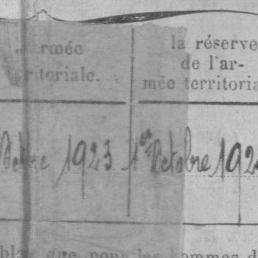 l'armée
territoriale.
la réserve
de l'ar-
mée territoria
1923 1er Octobre 192
que pour les hommes d